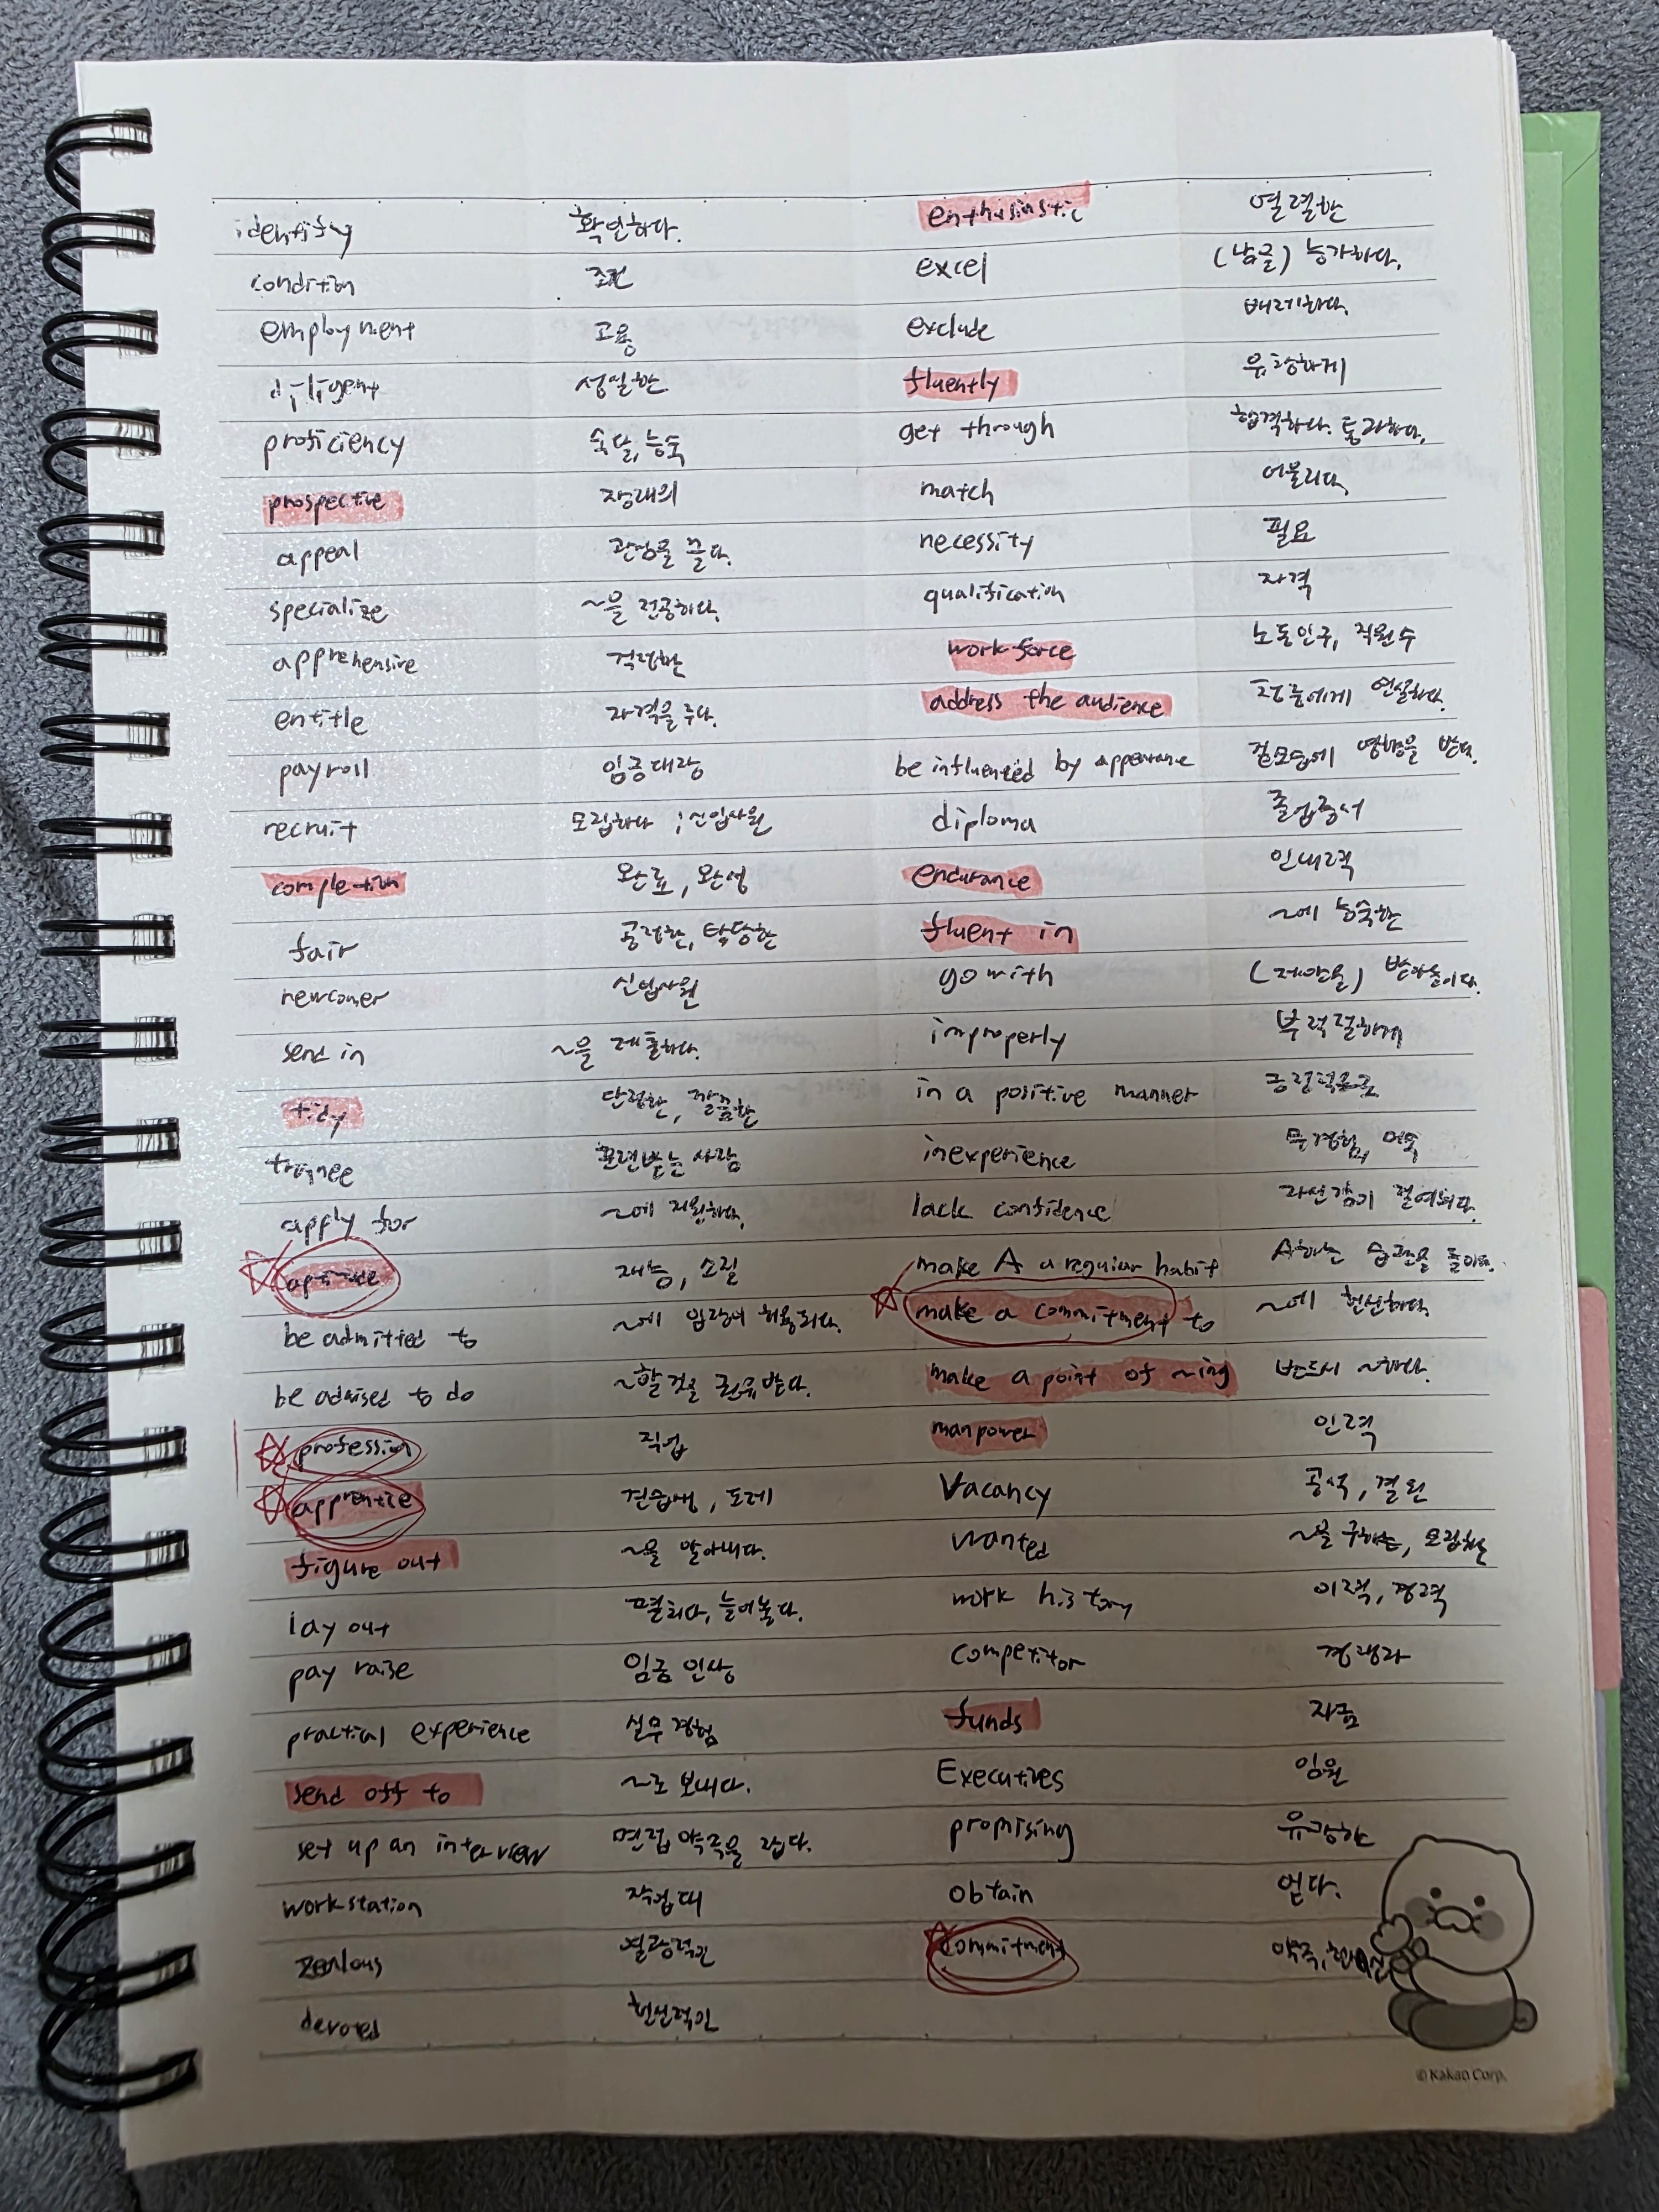 identify 확인하다.
condition 조건
employment 고용
diligent 성실한
proficiency 숙달, 능숙
prospective 장래의
appeal 관심을 끌다.
specialize ~을 전공하다.
apprehensive 걱정한
entitle 자격을 주다.
payroll 임금대장
recruit 모집하다 ; 신입사원
completion 완료, 완성
fair 공정한, 타당한
newcomer 신입사원
send in ~을 제출하다.
tidy 단정한, 깔끔한
trainee 훈련받는 사람
apply for ~에 지원하다.
aptitude 재능, 소질
be admitted to ~에 입장이 허용되다.
be advised to do ~할 것을 권유받다.
profession 직업
apprentice 견습생, 도제
figure out ~을 알아내다.
lay out 펼치다, 늘어놓다.
pay raise 임금 인상
practical experience 실무 경험
send off to ~로 보내다.
set up an interview 면접 약속을 잡다.
workstation 작업대
zealous 열광적인
devoted 헌신적인
enthusiastic 열렬한
excel (남을) 능가하다.
exclude 배제하다.
fluently 유창하게
get through 합격하다. 통과하다.
match 어울리다.
necessity 필요
qualification 자격
workforce 노동인구, 직원수
address the audience 청중에게 연설하다.
be influenced by appearance 겉모습에 영향을 받다.
diploma 졸업증서
endurance 인내력
fluent in ~에 능숙한
go with (제안을) 받아들이다.
improperly 부적절하게
in a positive manner 긍정적으로
inexperience 무경험, 미숙
lack confidence 자신감이 결여되다.
make A a regular habit A하는 습관을 들이다.
make a commitment to ~에 헌신하다.
make a point of ~ing 반드시 ~하다.
manpower 인력
Vacancy 공석, 결원
wanted ~을 구하는, 모집하는
work history 이력, 경력
competitor 경쟁자
funds 자금
Executives 임원
promising 유망한
obtain 얻다.
commitment 약속, 헌신
© Kakao Corp.